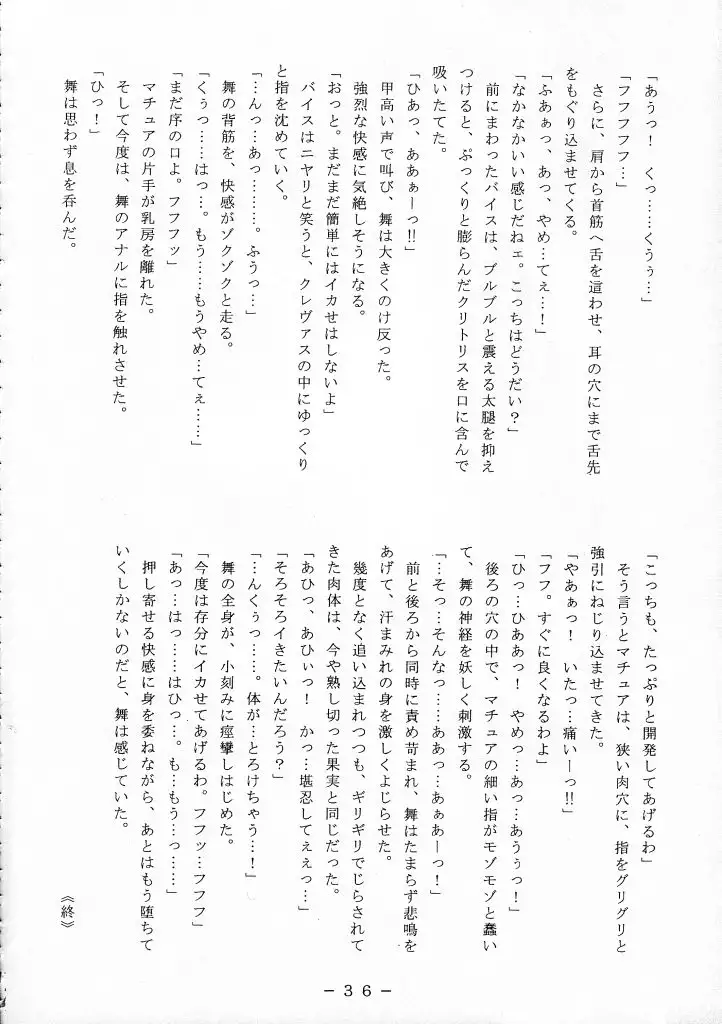 「あぅっ！　くっ……くうぅ…」
「フフフフフ…」
　さらに、肩から首筋へ舌を這わせ、耳の穴にまで舌先
をもぐり込ませてくる。
「ふあぁっ、あっ、やめ…てぇ…！」
「なかなかいい感じだねェ。こっちはどうだい？」
　前にまわったバイスは、ブルブルと震える太腿を抑え
つけると、ぷっくりと膨らんだクリトリスを口に含んで
吸いたてた。
「ひあっ、ああぁーっ!!」
　甲高い声で叫び、舞は大きくのけ反った。
　強烈な快感に気絶しそうになる。
「おっと。まだまだ簡単にはイカせはしないよ」
　バイスはニヤリと笑うと、クレヴァスの中にゆっくり
と指を沈めていく。
「…んっ…あっ………。ふうっ…」
　舞の背筋を、快感がゾクゾクと走る。
「くぅっ……はっ…。もう……もうやめ…てぇ……」
「まだ序の口よ。フフフッ」
　マチュアの片手が乳房を離れた。
　そして今度は、舞のアナルに指を触れさせた。
「ひっ！」
　舞は思わず息を呑んだ。
「こっちも、たっぷりと開発してあげるわ」
　そう言うとマチュアは、狭い肉穴に、指をグリグリと
強引にねじり込ませてきた。
「やあぁっ！　いたっ…痛いーっ!!」
「フフ。すぐに良くなるわよ」
「ひっ…ひああっ！　やめっ…あっ…あうぅっ！」
　後ろの穴の中で、マチュアの細い指がモゾモゾと蠢い
て、舞の神経を妖しく刺激する。
「…そっ…そんなっ……ああっ…あぁあーっ！」
　前と後ろから同時に責め苛まれ、舞はたまらず悲鳴を
あげて、汗まみれの身を激しくよじらせた。
　幾度となく追い込まれつつも、ギリギリでじらされて
きた肉体は、今や熟し切った果実と同じだった。
「あひっ、あひぃっ！　かっ…堪忍してぇぇっ…」
「そろそろイきたいんだろう？」
「…んくぅっ……。体が…とろけちゃう…！」
　舞の全身が、小刻みに痙攣しはじめた。
「今度は存分にイカせてあげるわ。フフッ…フフフ」
「あっ…はっ……はひっ…。も…もう…っ……」
　押し寄せる快感に身を委ねながら、あとはもう堕ちて
いくしかないのだと、舞は感じていた。
《終》
－３６－